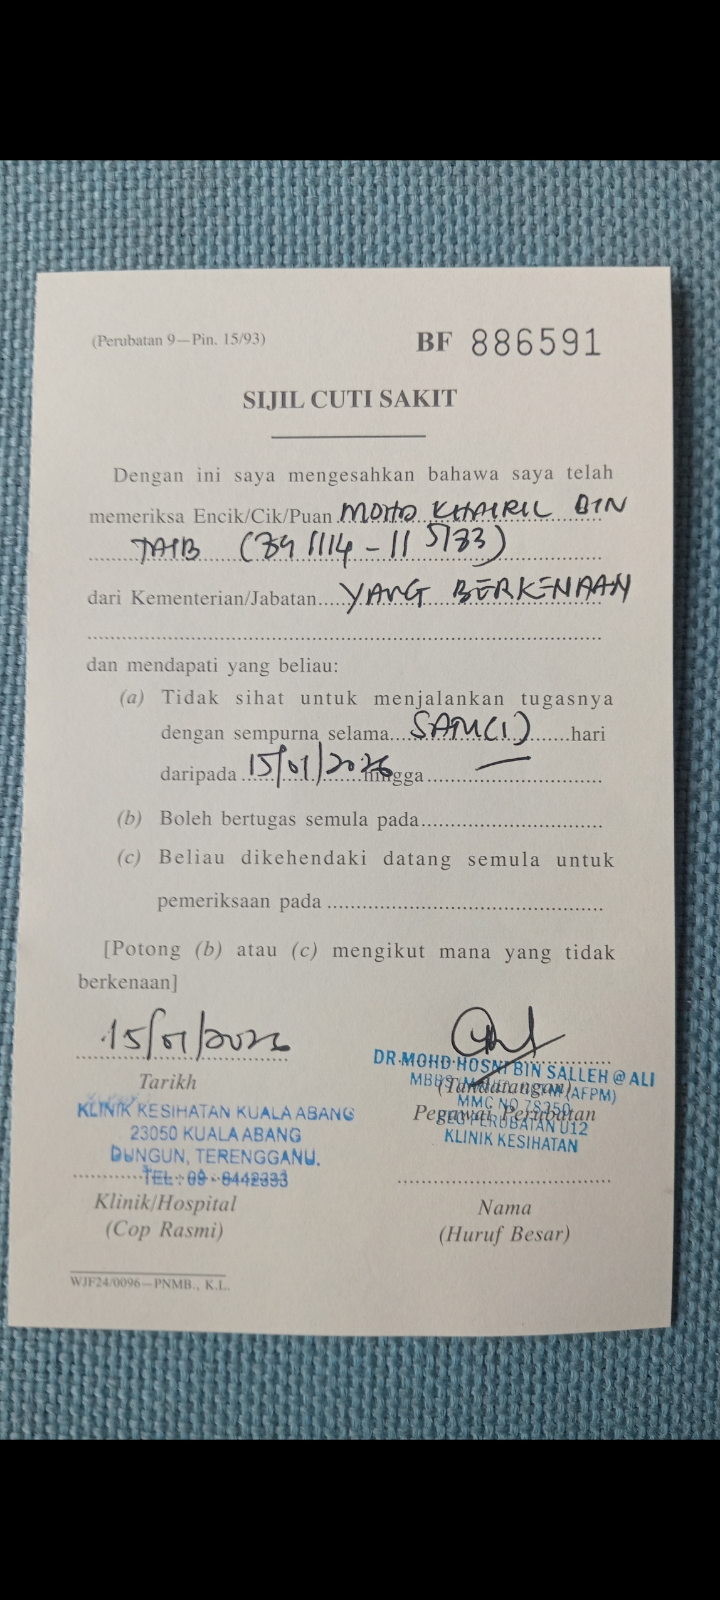 (Perubatan 9—Pin. 15/93)
BF 886591
SIJIL CUTI SAKIT
Dengan ini saya mengesahkan bahawa saya telah
memeriksa Encik/Cik/Puan MOHD KHAIRIL BIN
TAIB
dari Kementerian/Jabatan YANG BERKENAAN
dan mendapati yang beliau:
(a) Tidak sihat untuk menjalankan tugasnya
dengan sempurna selama SATU(1) hari
daripada 15/01/2026 hingga —
(b) Boleh bertugas semula pada
(c) Beliau dikehendaki datang semula untuk
pemeriksaan pada
[Potong (b) atau (c) mengikut mana yang tidak
berkenaan]
15/01/2026
Tarikh
KLINIK KESIHATAN KUALA ABANG
23050 KUALA ABANG
DUNGUN, TERENGGANU.
TEL : 09 - 8442333
Klinik/Hospital
(Cop Rasmi)
DR MOHD HOSNI BIN SALLEH @ ALI
(Tandatangan)
Pegawai Perubatan
KLINIK KESIHATAN
Nama
(Huruf Besar)
WJF24/0096—PNMB., K.L.